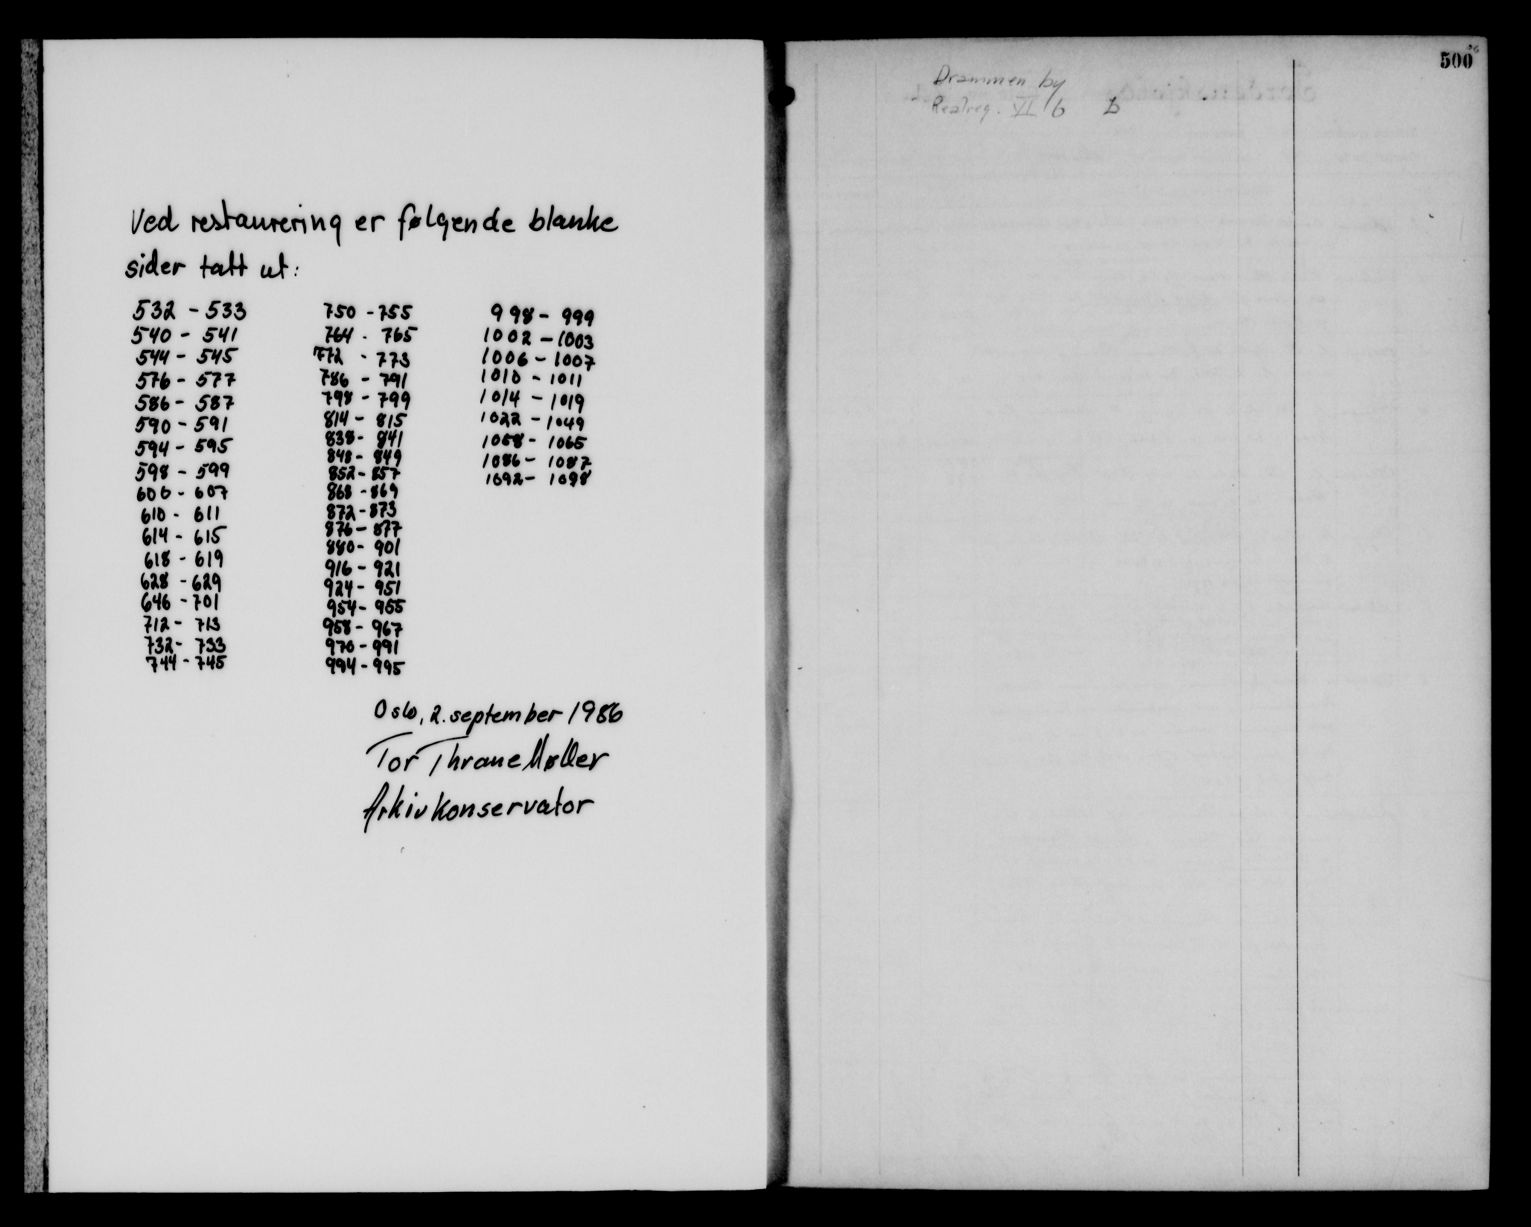 Ved restaurering er følgende blanke
sider tatt ut:
532 - 533
540 - 541
544 - 545
576 - 577
586 - 587
590 - 591
594 - 595
598 - 599
606 - 607
610 - 611
614 - 615
618 - 619
628 - 629
646 - 701
712 - 713
732 - 733
744 - 745
750 - 755
764 - 765
772 - 773
786 - 791
798 - 799
814 - 815
838 - 841
848 - 849
852 - 857
868 - 869
872 - 873
876 - 877
880 - 901
916 - 921
924 - 951
954 - 955
958 - 967
970 - 991
994 - 995
998 - 999
1002 - 1003
1006 - 1007
1010 - 1011
1014 - 1019
1022 - 1049
1058 - 1065
1086 - 1087
1092 - 1098
Oslo, 2. september 1986
Tor Thrane Møller
Arkivkonservator
Drammen by
Realreg. VI b b
500